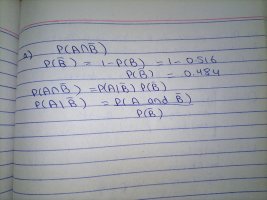 d) P(A∩B̄)
P(B̄) = 1-P(B) = 1-0.516
P(B̄) = 0.484
P(A∩B̄) = P(A|B̄) P(B̄)
P(A|B̄) = P(A and B̄)
P(B̄)